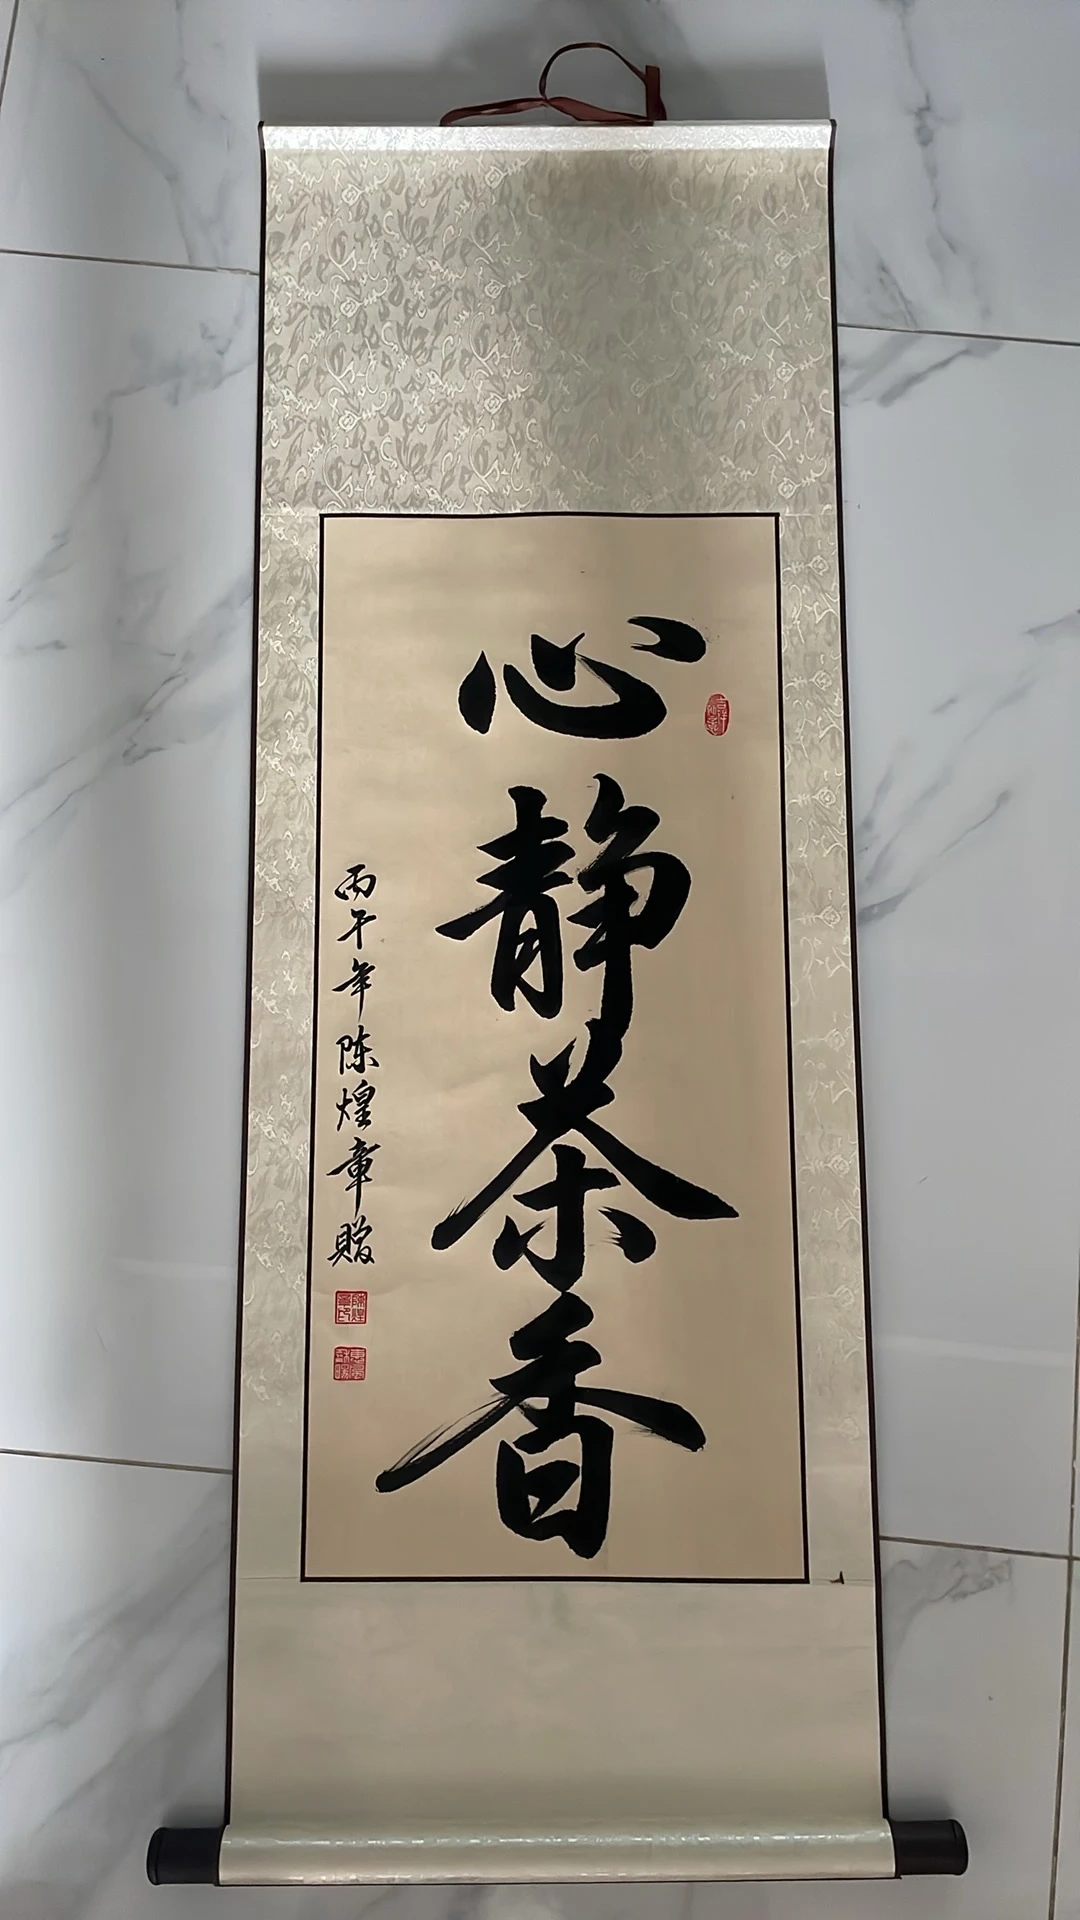 心静茶香
丙午年陈煌章赠